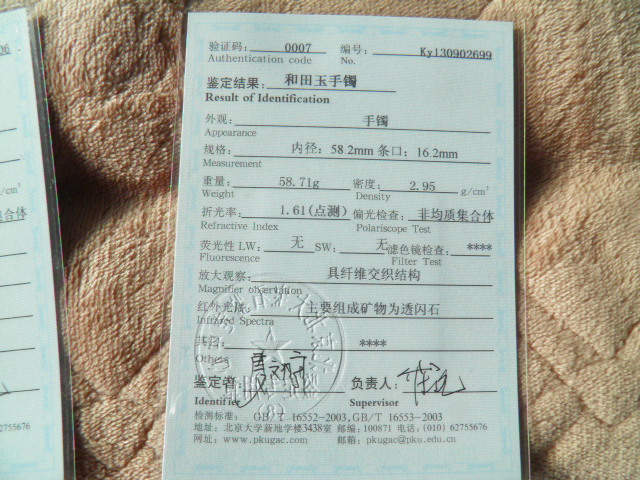 验证码: 0007 编号: Ky130902699
Authentication code No.
鉴定结果: 和田玉手镯
Result of Identification
外观: 手镯
Appearance
规格: 内径: 58.2mm 条口: 16.2mm
Measurement
重量: 58.71g 密度: 2.95 g/cm³
Weight Density
折光率: 1.61(点测) 偏光检查: 非均质集合体
Refractive Index Polariscope Test
荧光性 LW: 无 SW: 无 滤色镜检查: ****
Fluorescence Filter Test
放大观察: 具纤维交织结构
Magnifier observation
红外光谱: 主要组成矿物为透闪石
Infrared Spectra
其它: ****
Others
鉴定者: 负责人:
Identifier Supervisor
检测标准: GB/T 16552-2003,GB/T 16553-2003
地址: 北京大学新地学楼3438室 邮编:100871 电话: (010) 62755676
网址: www.pkugac.com 邮箱: pkugac@pku.edu.cn
g/cm³
集合体
****
62755676